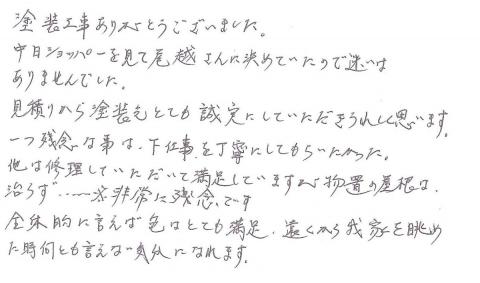 塗装工事ありがとうございました。
中日ショッパーを見て尾越さんに決めていたので迷いは
ありませんでした。
見積りから塗装迄とても誠実にしていただきうれしく思います。
一つ残念な事は、下仕事を丁寧にしてもらいたかった。
他は修理していただいて満足していますが物置の屋根は、
治らず……※非常に残念です
全体的に言えば色はとても満足、遠くから我家を眺め
た時何とも言えない気分になれます。